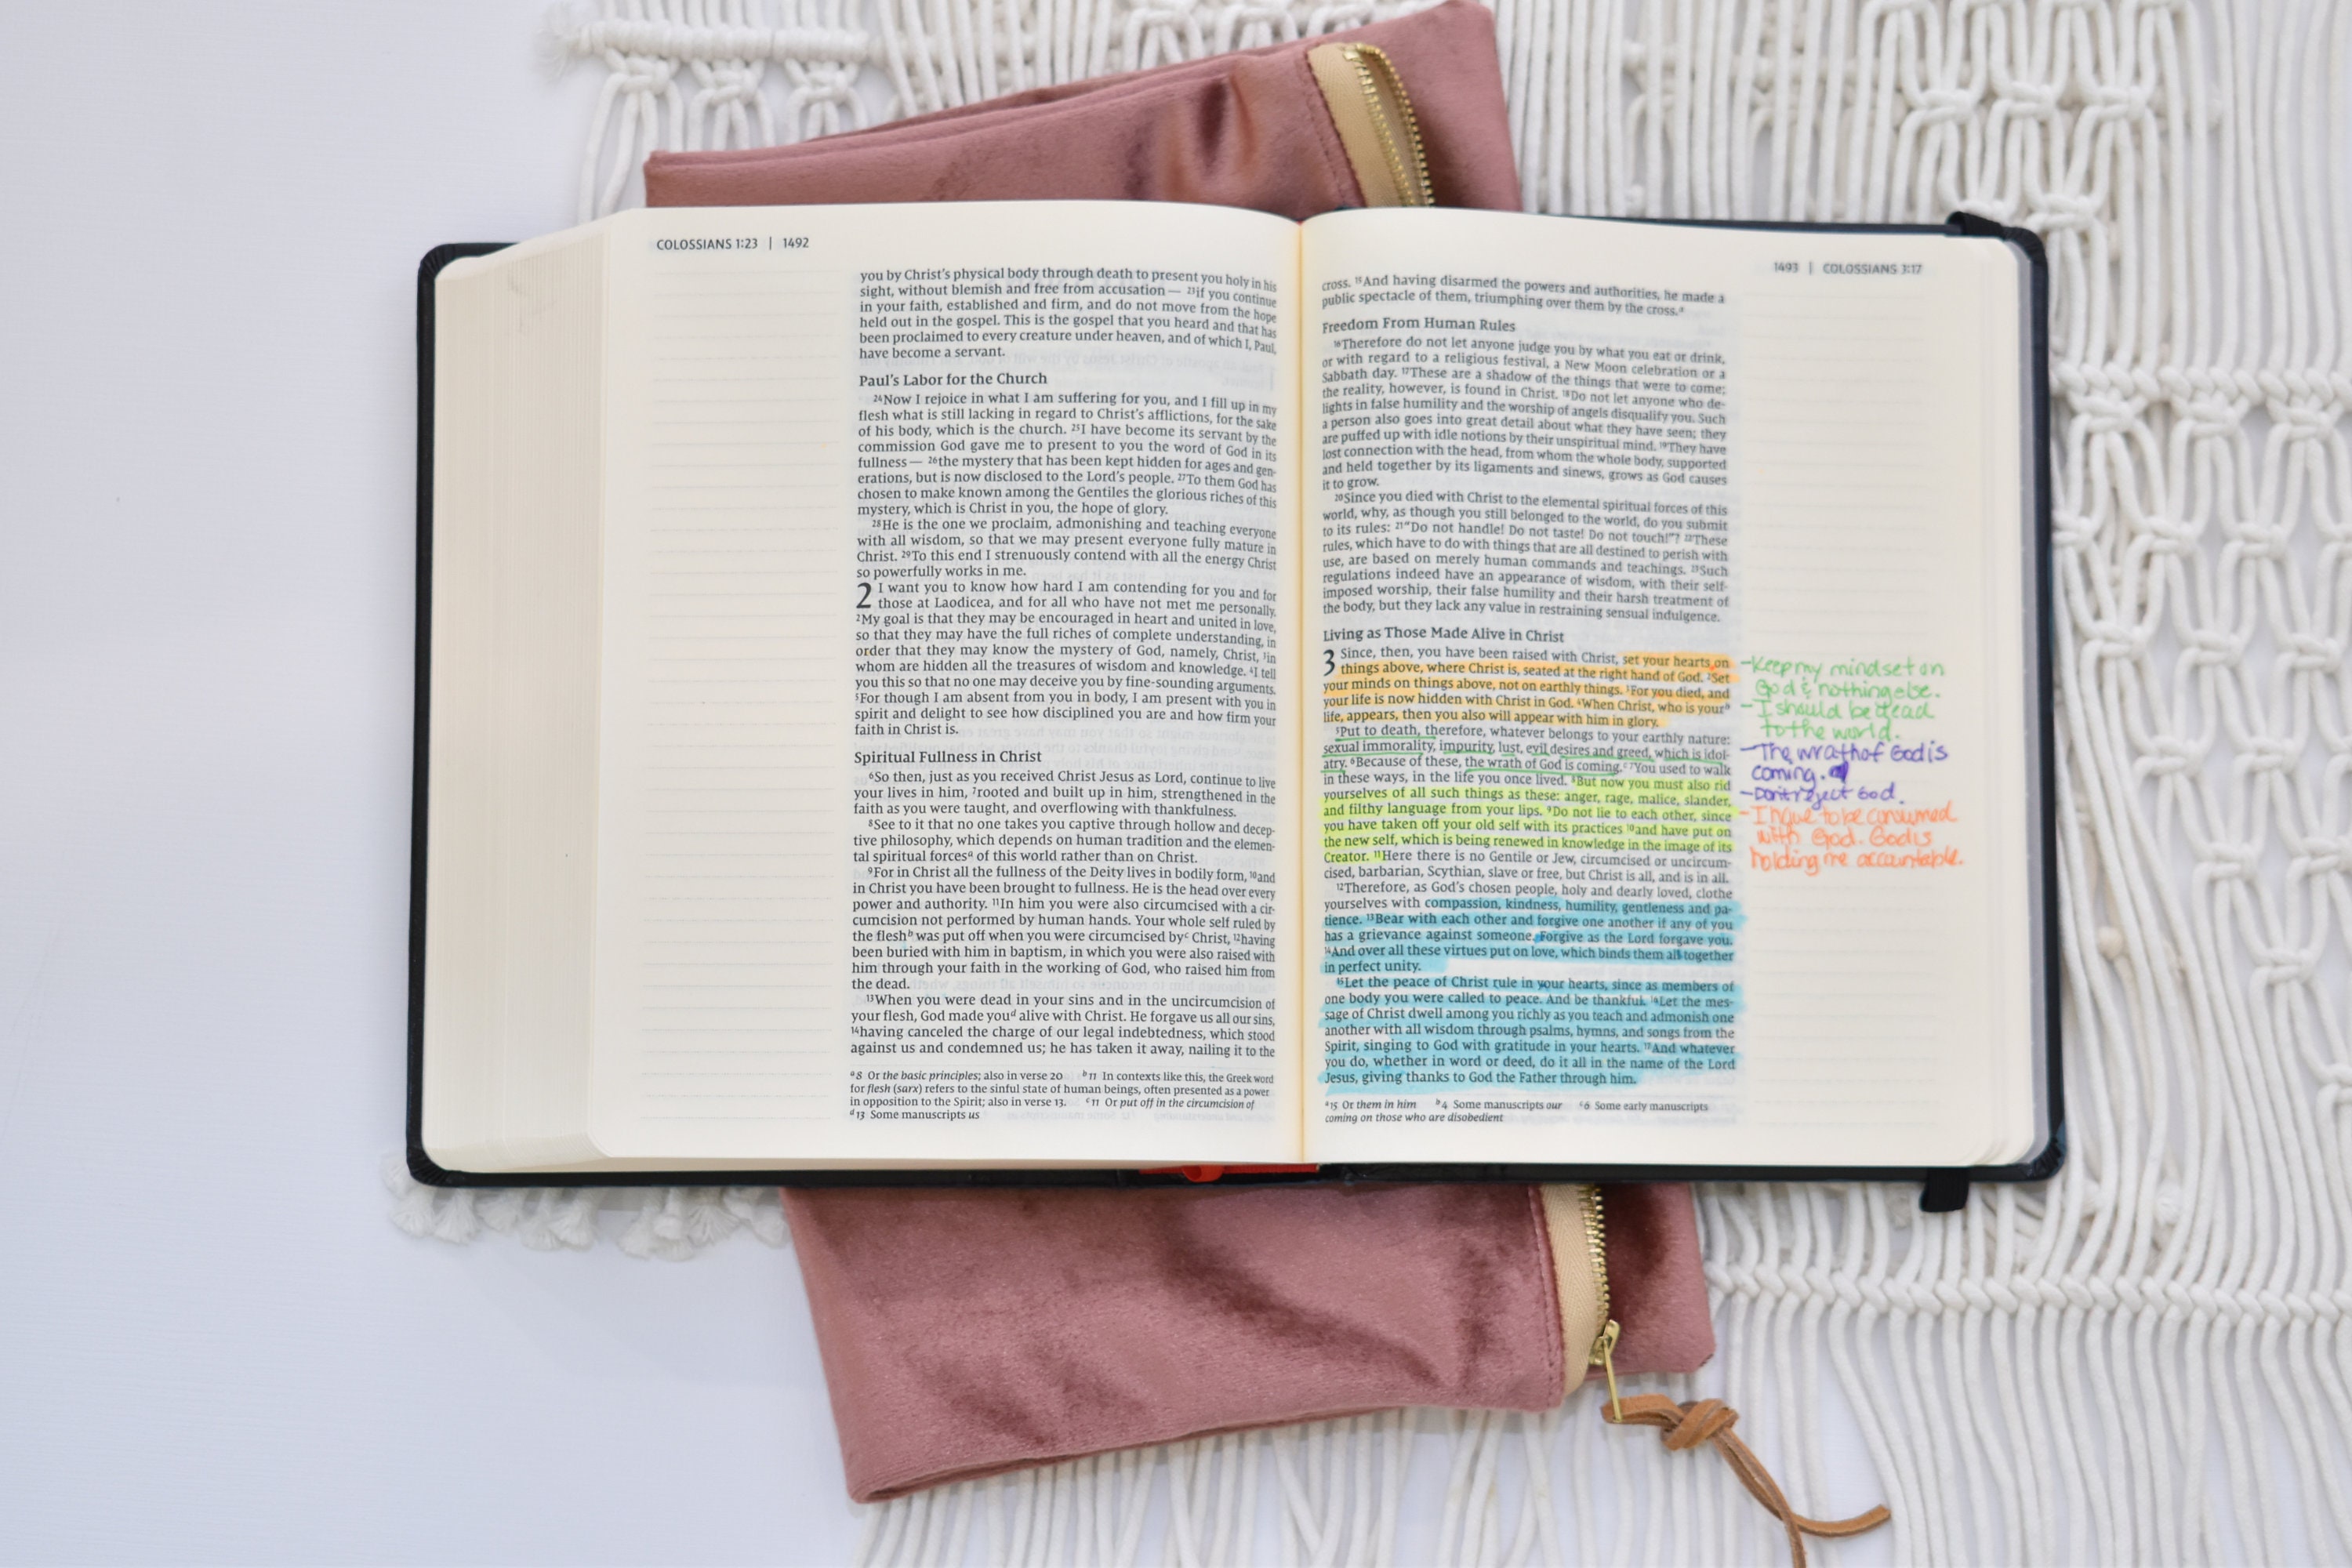 COLOSSIANS 1:23 | 1492
you by Christ's physical body through death to present you holy in his
sight, without blemish and free from accusation — 23if you continue
in your faith, established and firm, and do not move from the hope
held out in the gospel. This is the gospel that you heard and that has
been proclaimed to every creature under heaven, and of which I, Paul,
have become a servant.
Paul's Labor for the Church
24Now I rejoice in what I am suffering for you, and I fill up in my
flesh what is still lacking in regard to Christ's afflictions, for the sake
of his body, which is the church. 25I have become its servant by the
commission God gave me to present to you the word of God in its
fullness — 26the mystery that has been kept hidden for ages and gen-
erations, but is now disclosed to the Lord's people. 27To them God has
chosen to make known among the Gentiles the glorious riches of this
mystery, which is Christ in you, the hope of glory.
28He is the one we proclaim, admonishing and teaching everyone
with all wisdom, so that we may present everyone fully mature in
Christ. 29To this end I strenuously contend with all the energy Christ
so powerfully works in me.
2 I want you to know how hard I am contending for you and for
those at Laodicea, and for all who have not met me personally.
2My goal is that they may be encouraged in heart and united in love,
so that they may have the full riches of complete understanding, in
order that they may know the mystery of God, namely, Christ, 3in
whom are hidden all the treasures of wisdom and knowledge. 4I tell
you this so that no one may deceive you by fine-sounding arguments.
5For though I am absent from you in body, I am present with you in
spirit and delight to see how disciplined you are and how firm your
faith in Christ is.
Spiritual Fullness in Christ
6So then, just as you received Christ Jesus as Lord, continue to live
your lives in him, 7rooted and built up in him, strengthened in the
faith as you were taught, and overflowing with thankfulness.
8See to it that no one takes you captive through hollow and decep-
tive philosophy, which depends on human tradition and the elemen-
tal spiritual forcesa of this world rather than on Christ.
9For in Christ all the fullness of the Deity lives in bodily form, 10and
in Christ you have been brought to fullness. He is the head over every
power and authority. 11In him you were also circumcised with a cir-
cumcision not performed by human hands. Your whole self ruled by
the fleshb was put off when you were circumcised byc Christ, 12having
been buried with him in baptism, in which you were also raised with
him through your faith in the working of God, who raised him from
the dead.
13When you were dead in your sins and in the uncircumcision of
your flesh, God made youd alive with Christ. He forgave us all our sins,
14having canceled the charge of our legal indebtedness, which stood
against us and condemned us; he has taken it away, nailing it to the
a8 Or the basic principles; also in verse 20 b11 In contexts like this, the Greek word
for flesh (sarx) refers to the sinful state of human beings, often presented as a power
in opposition to the Spirit; also in verse 13. c11 Or put off in the circumcision of
d13 Some manuscripts us
1493 | COLOSSIANS 3:17
cross. 15And having disarmed the powers and authorities, he made a
public spectacle of them, triumphing over them by the cross.a
Freedom From Human Rules
16Therefore do not let anyone judge you by what you eat or drink,
or with regard to a religious festival, a New Moon celebration or a
Sabbath day. 17These are a shadow of the things that were to come;
the reality, however, is found in Christ. 18Do not let anyone who de-
lights in false humility and the worship of angels disqualify you. Such
a person also goes into great detail about what they have seen; they
are puffed up with idle notions by their unspiritual mind. 19They have
lost connection with the head, from whom the whole body, supported
and held together by its ligaments and sinews, grows as God causes
it to grow.
20Since you died with Christ to the elemental spiritual forces of this
world, why, as though you still belonged to the world, do you submit
to its rules: 21"Do not handle! Do not taste! Do not touch!"? 22These
rules, which have to do with things that are all destined to perish with
use, are based on merely human commands and teachings. 23Such
regulations indeed have an appearance of wisdom, with their self-
imposed worship, their false humility and their harsh treatment of
the body, but they lack any value in restraining sensual indulgence.
Living as Those Made Alive in Christ
3 Since, then, you have been raised with Christ, set your hearts on
things above, where Christ is, seated at the right hand of God. 2Set
your minds on things above, not on earthly things. 3For you died, and
your life is now hidden with Christ in God. 4When Christ, who is yourb
life, appears, then you also will appear with him in glory.
5Put to death, therefore, whatever belongs to your earthly nature:
sexual immorality, impurity, lust, evil desires and greed, which is idol-
atry. 6Because of these, the wrath of God is coming.c 7You used to walk
in these ways, in the life you once lived. 8But now you must also rid
yourselves of all such things as these: anger, rage, malice, slander,
and filthy language from your lips. 9Do not lie to each other, since
you have taken off your old self with its practices 10and have put on
the new self, which is being renewed in knowledge in the image of its
Creator. 11Here there is no Gentile or Jew, circumcised or uncircum-
cised, barbarian, Scythian, slave or free, but Christ is all, and is in all.
12Therefore, as God's chosen people, holy and dearly loved, clothe
yourselves with compassion, kindness, humility, gentleness and pa-
tience. 13Bear with each other and forgive one another if any of you
has a grievance against someone. Forgive as the Lord forgave you.
14And over all these virtues put on love, which binds them all together
in perfect unity.
15Let the peace of Christ rule in your hearts, since as members of
one body you were called to peace. And be thankful. 16Let the mes-
sage of Christ dwell among you richly as you teach and admonish one
another with all wisdom through psalms, hymns, and songs from the
Spirit, singing to God with gratitude in your hearts. 17And whatever
you do, whether in word or deed, do it all in the name of the Lord
Jesus, giving thanks to God the Father through him.
a15 Or them in him b4 Some manuscripts our c6 Some early manuscripts
coming on those who are disobedient
-Keep my mindset on
God & nothing else.
-I should be dead
to the world.
-The wrath of God is
coming.
-Don't reject God.
-I have to be consumed
with God. God is
holding me accountable.